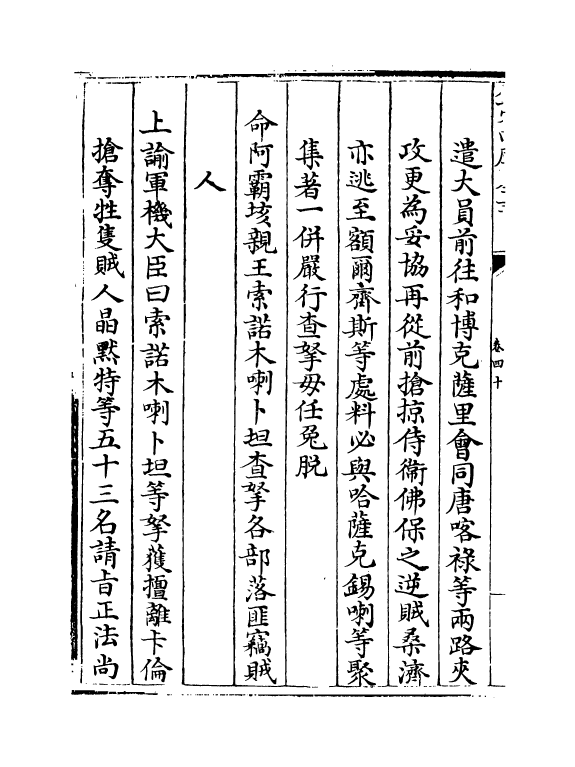 遣大員前往和博克薩里會同唐喀祿等兩路夾
攻更為妥協再從前搶掠侍衛佛保之逆賊桑濟
亦逃至額爾齊斯等處料必與哈薩克錫喇等聚
集著一併嚴行查拏毋任兔脫
命阿霸垓親王索諾木喇卜坦查拏各部落匪竊賊
人
上諭軍機大臣曰索諾木喇卜坦等拏獲擅離卡倫
搶奪牲隻賊人晶默特等五十三名請旨正法尚
卷四十